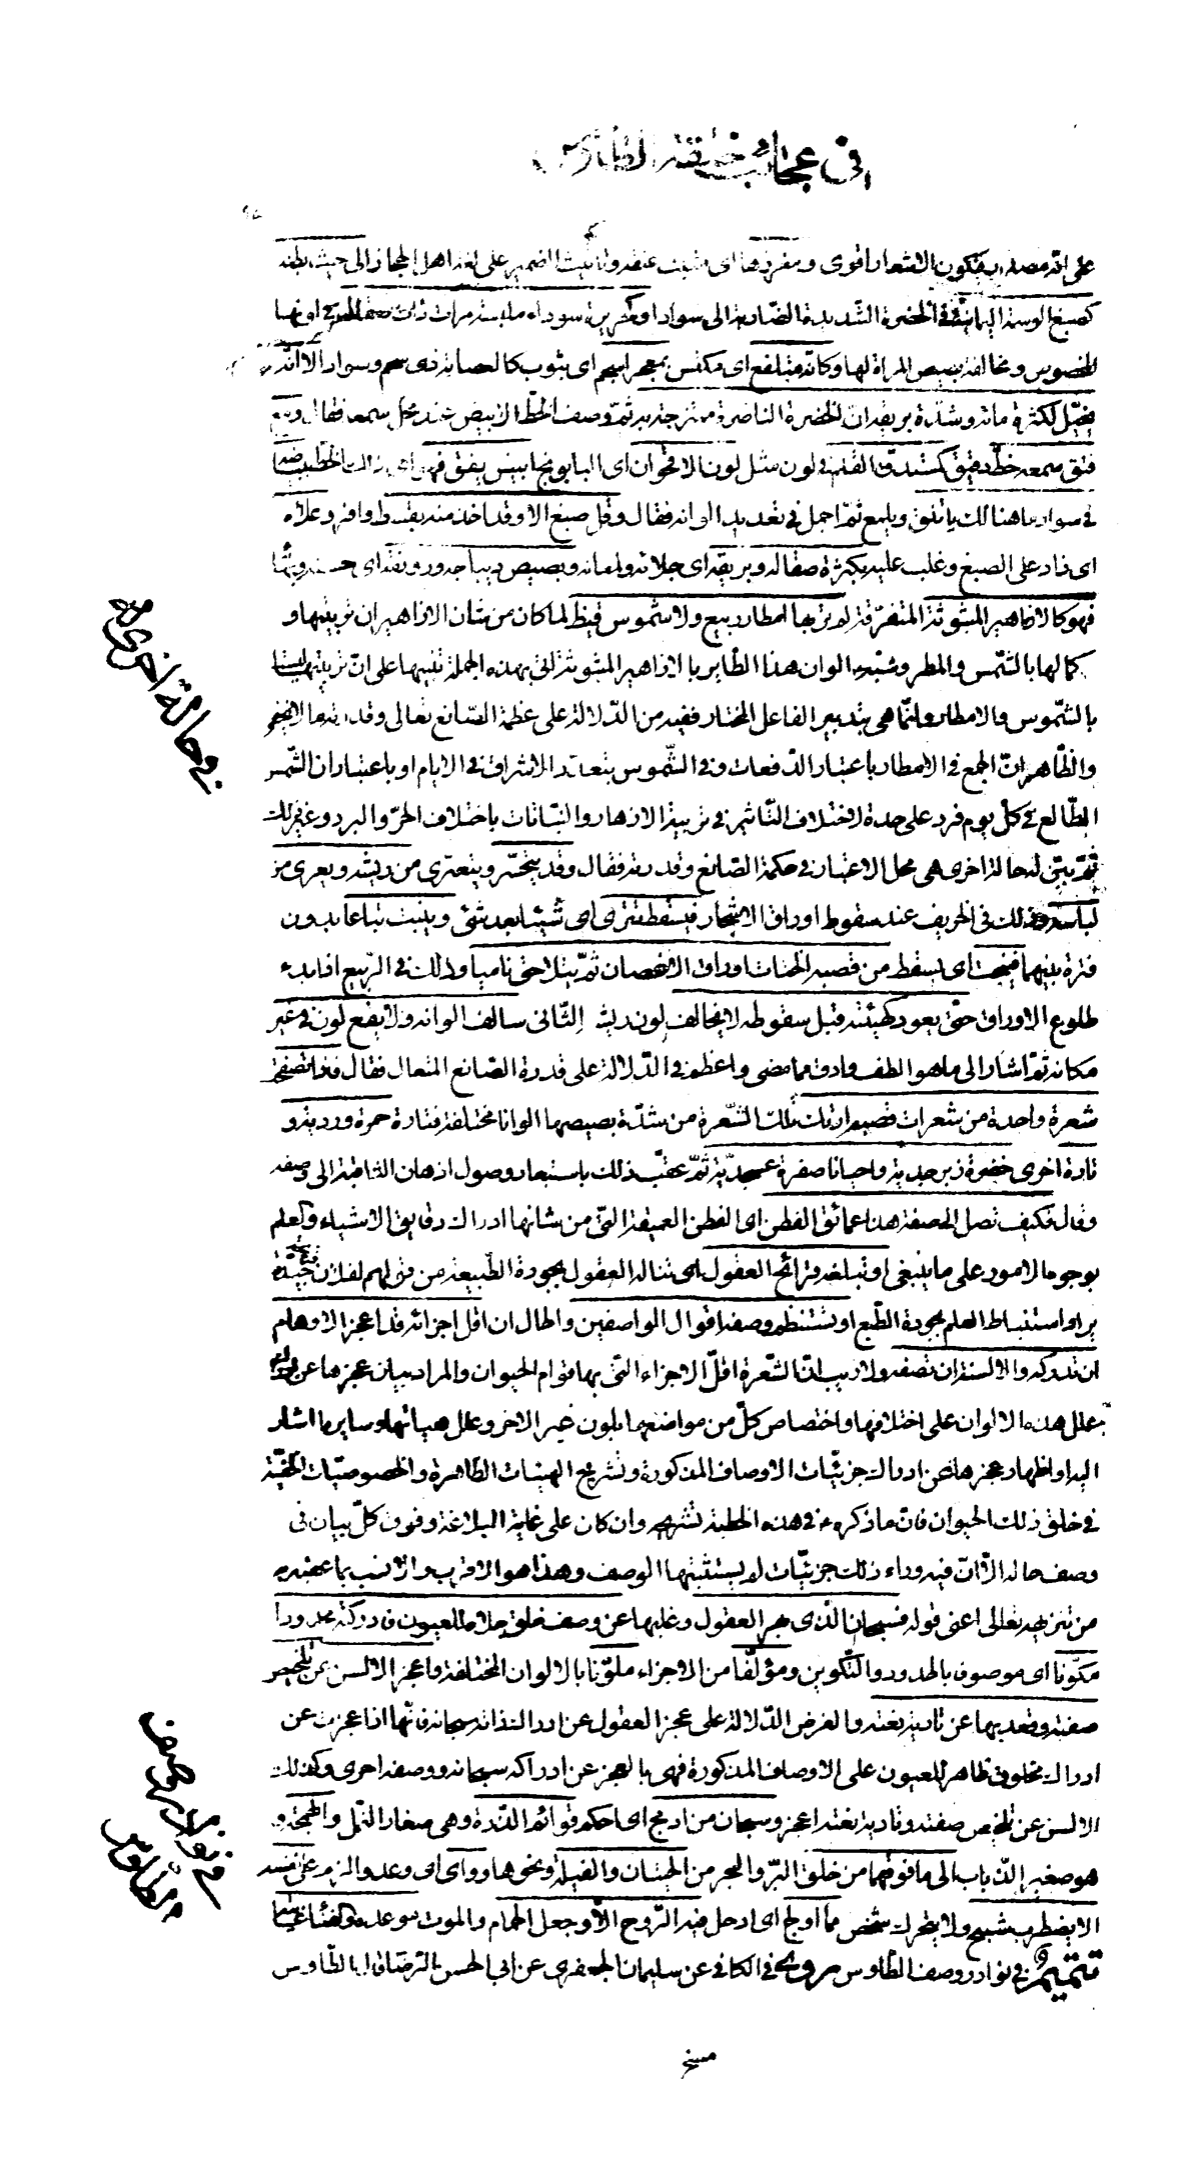 في عجائب خلقة الطاوس
على انه مصدر فيكون الاشعار اقوى ومغرزها اى مثبت عنقه وتأنيث الضمير على لغة اهل الحجاز الى حيث بطنه
كصبغ الوسمة اليمانية في الخضرة الشديدة الضاربة الى سواد او كحريرة سوداء ملبسة مرآت ذات صقال
وكانه متلفع اى مكتس بمعجر اسحم اى بثوب كالعصابة ذى سحم وسواد الا انه
يخيل لكثرة مائه وشدة بريقه ان الخضرة الناضرة ممتزجة به ثم وصف الخط الابيض عند محل سمعه فقال ومع
فتق سمعه خط دقيق كمستدق القلم في لون مثل لون الاقحوان اى البابونج ابيض يقق فهو اى ذلك الخط ببياضه
في سواد ما هنالك يأتلق ويلمع ثم اجمل في تعديد الوانه فقال وقل صبغ الا وقد اخذ منه بقسط وافر وعلاه
اى زاد على الصبغ وغلب عليه بكثرة صقاله وبريقه اى جلائه ولمعانه وبصيص ديباجه ورونقه اى حسنه وبهائه
فهو كالازاهير المبثوثة المتفرقة لم تربها امطار ربيع ولا شموس قيظ لما كان من شأن الازاهير ان تربيتها و
كمالها بالشمس والمطر وشبه الوان هذا الطاير بالازاهير المبثوثة اتى بهذه الجملة تنبيها على ان تربيتها ليست
بالشموس والامطار وانما هي بتدبير الفاعل المختار ففيه من الدلالة على عظمة الصانع تعالى وقدرته ما لا يخفى
والظاهر ان الجمع في الامطار باعتبار الدفعات وفي الشموس بتعدد الاشراق في الايام او باعتبار ان الشمس
الطالع في كل يوم فرد على حدة لاختلاف التأثير في تربية الازهار والنباتات باختلاف الحر والبرد وغير ذلك
ثم بين له حالة اخرى هي محل الاعتبار في حكمة الصانع وقدرته فقال وقد يتحسر ويتعرى من ريشه ويعرى من
لباسه وذلك في الخريف عند سقوط اوراق الاشجار فيسقط تترى اى شيئا بعد شئ وينبت تباعا بدون
فترة بينهما فينحت اى يسقط من قصبه انحتات اوراق الاغصان ثم يتلاحق ناميا وذلك في الربيع اذا بدء
طلوع الاوراق حتى يعود كهيئته قبل سقوطه لا يخالف لون ريشه الثانى سالف الوانه ولا يقع لون في غير
مكانه ثم اشار الى ما هو الطف وادق مما مضى واعظم في الدلالة على قدرة الصانع المتعال فقال فاذا تصفحت
شعرة واحدة من شعرات قصبه ارتك تلك الشعرة من شدة بصيصها الوانا مختلفة فتارة حمرة وردية و
تارة اخرى خضرة زبرجدية واحيانا صفرة عسجدية ثم عقب ذلك باستبعاد وصول اذهان الثاقبة الى وصفه
وقال فكيف تصل الى صفة هذا عمائق الفطن اى الفطن العميقة التى من شأنها ادراك دقايق الاشياء والعلم
بوجوه الامور على ما ينبغى او تبلغه قرائح العقول اى تناله العقول بجودة الطبيعة من قولهم لفلان قريحة جيدة
يراد استنباط العلم بجودة الطبع او تستنظم وصفه اقوال الواصفين والحال ان اقل اجزائه قد اعجز الاوهام
ان تدركه والالسنة ان تصفه ولا ريب ان الشعرة اقل الاجزاء التى بها قوام الحيوان والمراد بيان عجزها عن
علل هذه الالوان على اختلافها واختصاص كل من مواضعها بلون غير الاخر وعلل هيآتها وساير ما اشار
اليه او اظهار عجزها عن ادراك جزئيات الاوصاف المذكورة وتشريح الهيئات الظاهرة والخصوصيات الخفية
في خلق ذلك الحيوان فان ما ذكره في هذه الخطبة تشريحه وان كان على غاية البلاغة وفوق كل بيان فى
وصف حاله الا ان فيه وراء ذلك جزئيات لم يستثبتها الوصف وهذا هو الاقرب والانسب بما عقبه به
من تنزيهه تعالى اعنى قوله فسبحان الذى بهر العقول وغلبها عن وصف خلق جلاه للعيون فادركته محدودا
مكونا اى موصوفا بالحدود والتكوين ومؤلفا من الاجزاء ملونا بالالوان المختلفة واعجز الالسن عن تلخيص
صفته وقعد بها عن تادية نعته والغرض الدلالة على عجز العقول عن ادراك ذاته سبحانه فانها اذا عجزت عن
ادراك مخلوق ظاهر للعيون على الاوصاف المذكورة فهى بالعجز عن ادراكه سبحانه ووصفه احرى وكذلك
الالسن عن تلخيص صفته وتادية نعته اعجز وسبحان من ادمج اى احكم قوائم الذرة وهى صغار النمل والهمجة و
هو صغير الذباب الى ما فوقهما من خلق البر والبحر من الحيتان والفيلة ونحوها ووأى اى وعد والزم على نفسه
الا يضطرب شبح ولا يتحرك شخص مما اولج اى ادخل فيه الروح الا وجعل الحمام والموت موعده والفناء غايته
تتميم في نوادر وصف الطاوس مروى في الكافي عن سليمان الجعفرى عن ابى الحسن الرضا قال الطاوس
مسخ
في حالة اخرى له
في نوادر وصف
الطاوس